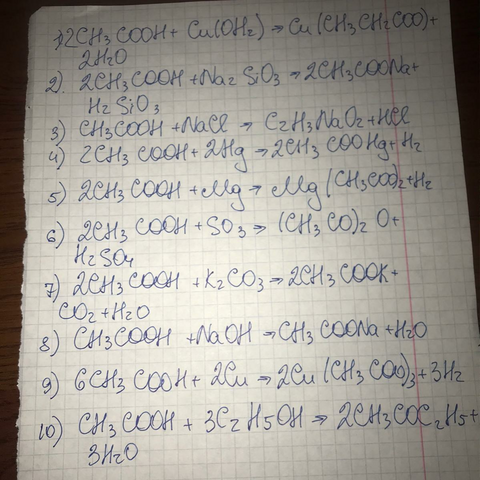 1) 2CH3COOH + Cu(OH2) → Cu(CH3CH2COO)+
2H2O
2) 2CH3COOH + Na2SiO3 → 2CH3COONa+
H2SiO3
3) CH3COOH + NaCl → C2H3NaO2 + HCl
4) 2CH3COOH + 2Hg → 2CH3COOHg + H2
5) 2CH3COOH + Mg → Mg(CH3COO)2 + H2
6) 2CH3COOH + SO3 → (CH3CO)2O+
H2SO4
7) 2CH3COOH + K2CO3 → 2CH3COOK+
CO2 + H2O
8) CH3COOH + NaOH → CH3COONa + H2O
9) 6CH3COOH + 2Cu → 2Cu(CH3COO)3 + 3H2
10) CH3COOH + 3C2H5OH → 2CH3COC2H5+
3H2O